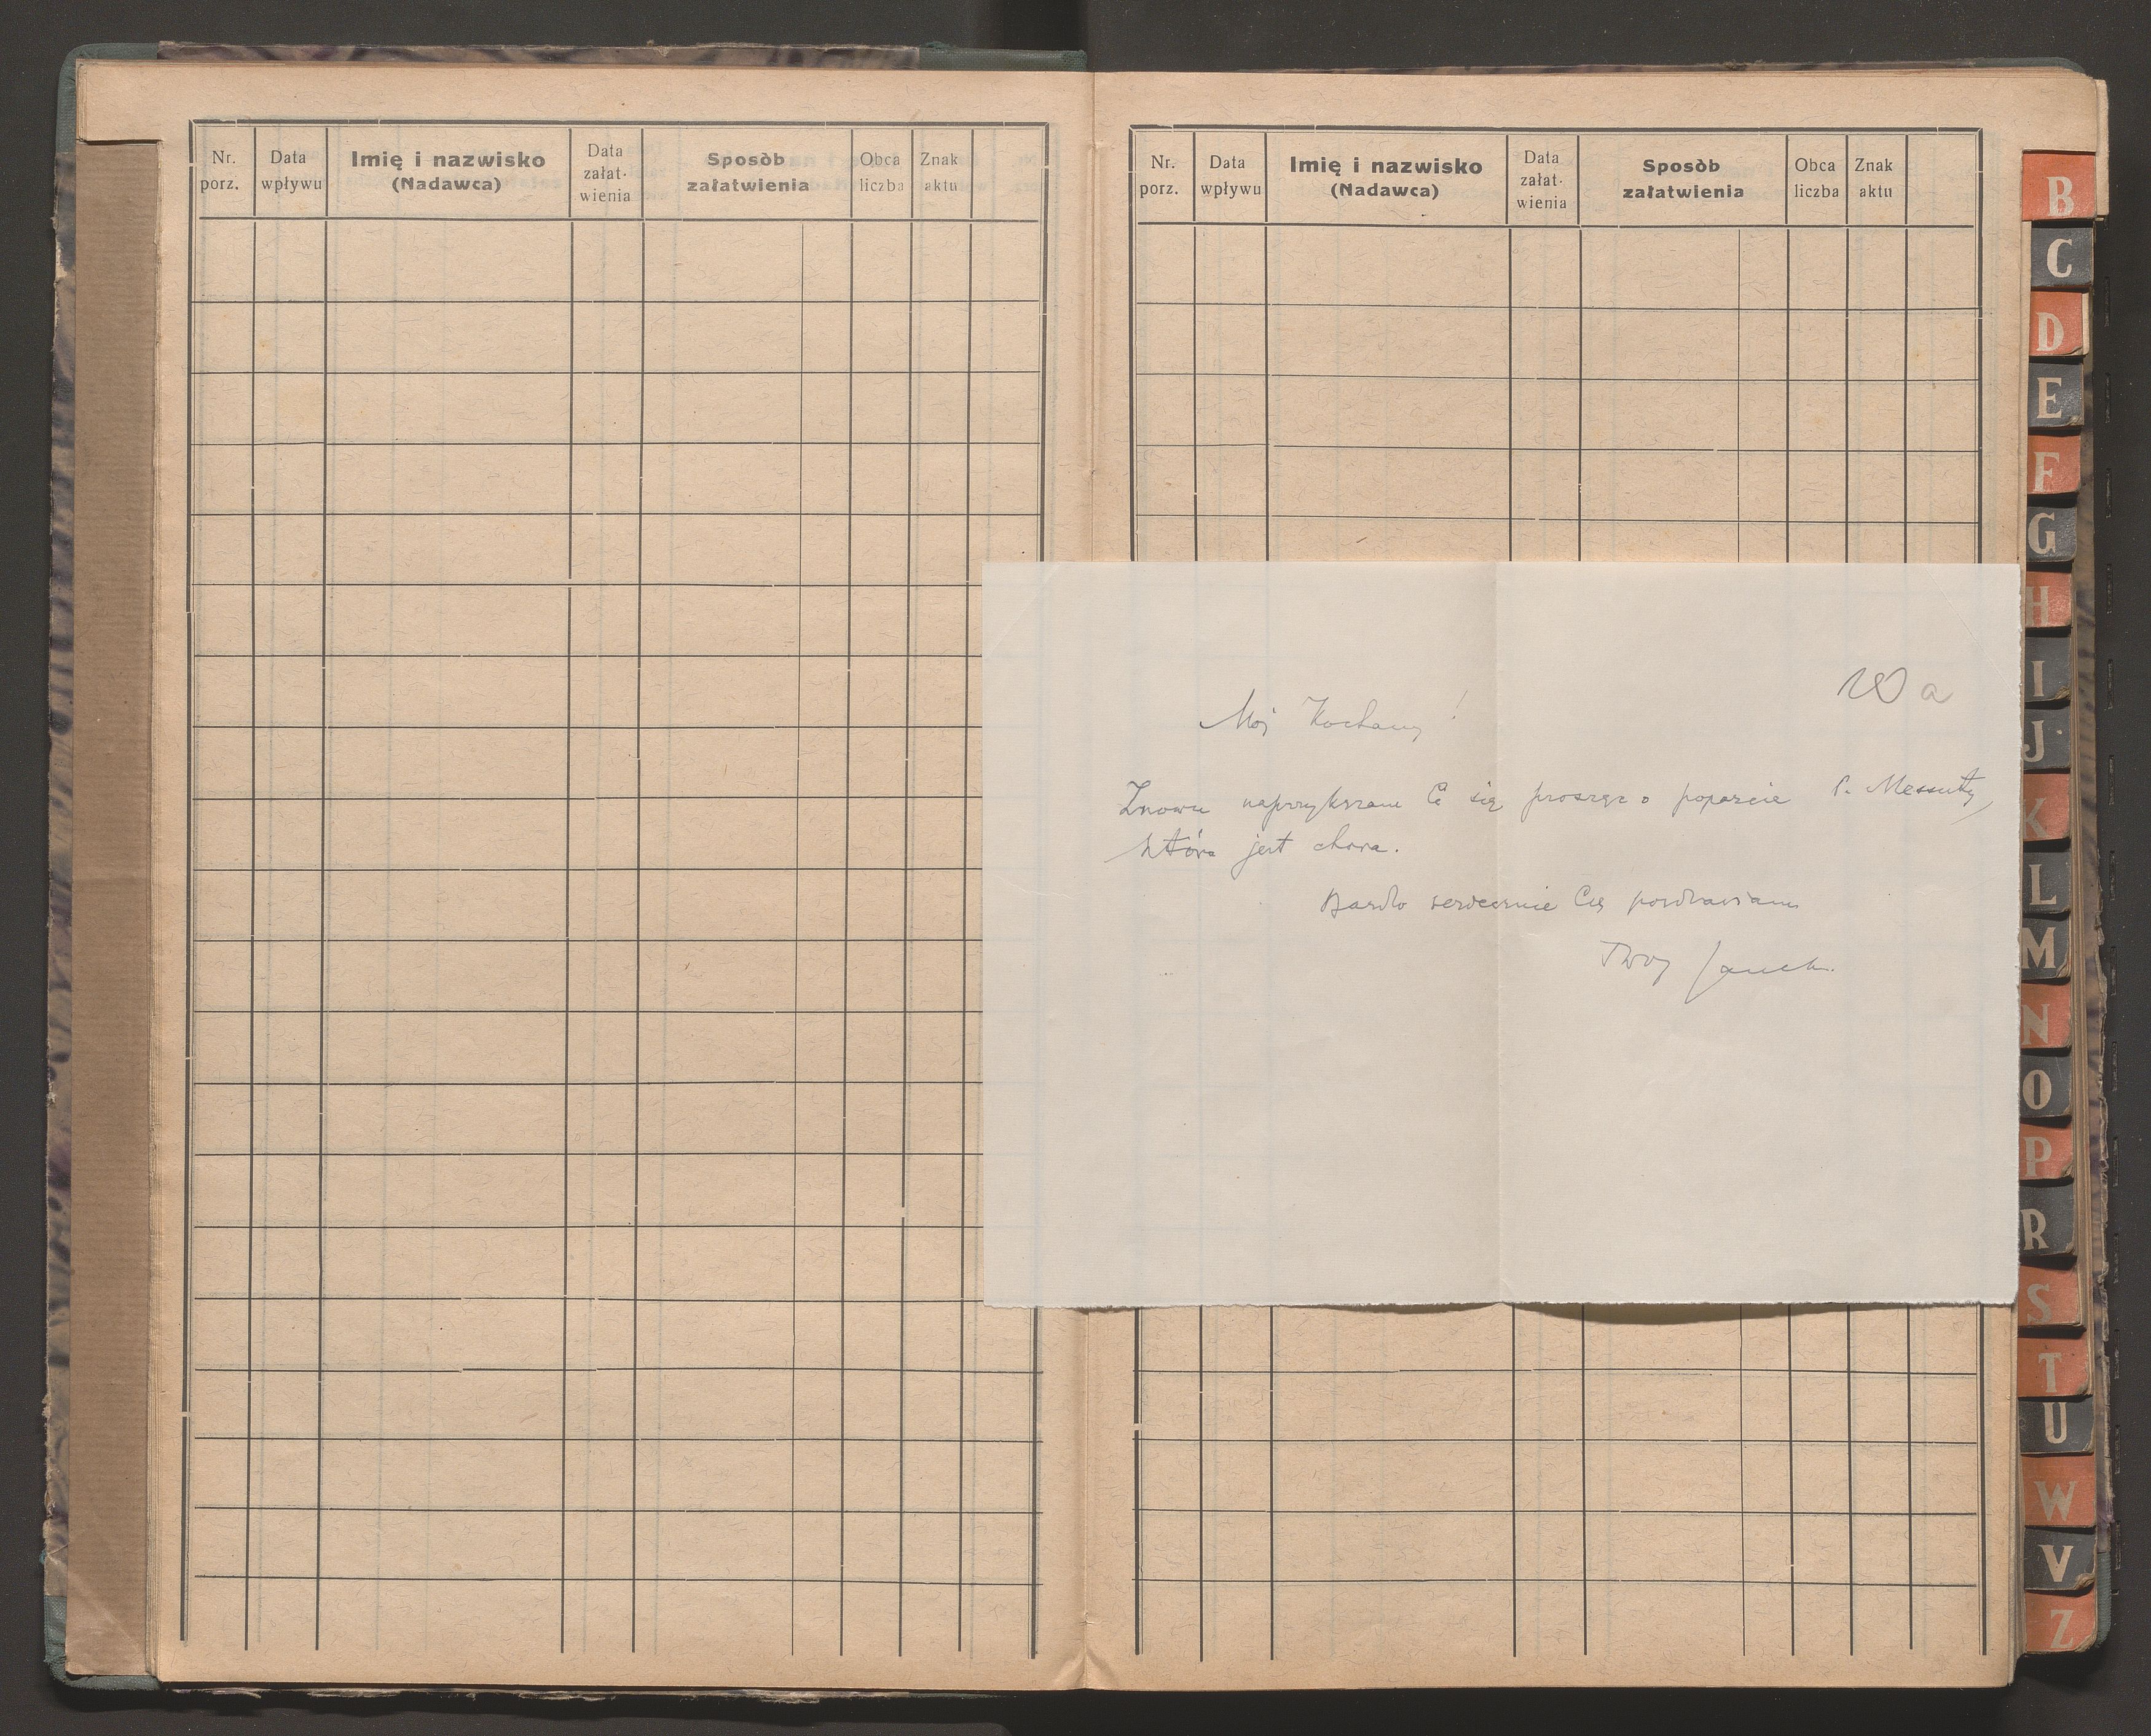 Nr. porz.
Data wpływu
Imię i nazwisko
(Nadawca)
Data załat- wienia
Sposòb
załatwienia
Obca liczba
Znak aktu
Nr. porz.
Data wpływu
Imię i nazwisko
(Nadawca)
Data załat- wienia
Sposòb
załatwienia
Obca liczba
Znak aktu
a
Mój Kochany!
Znowu naprzykrzam Ci się prosząc o poparcie P. Messuty,
która jest chora.
Bardzo serdecznie Cię pozdrawiam
Twój Janek.
B
C
D
E
F
G
H
I
J
K
L
M
N
O
P
R
S
T
U
W
V
Z